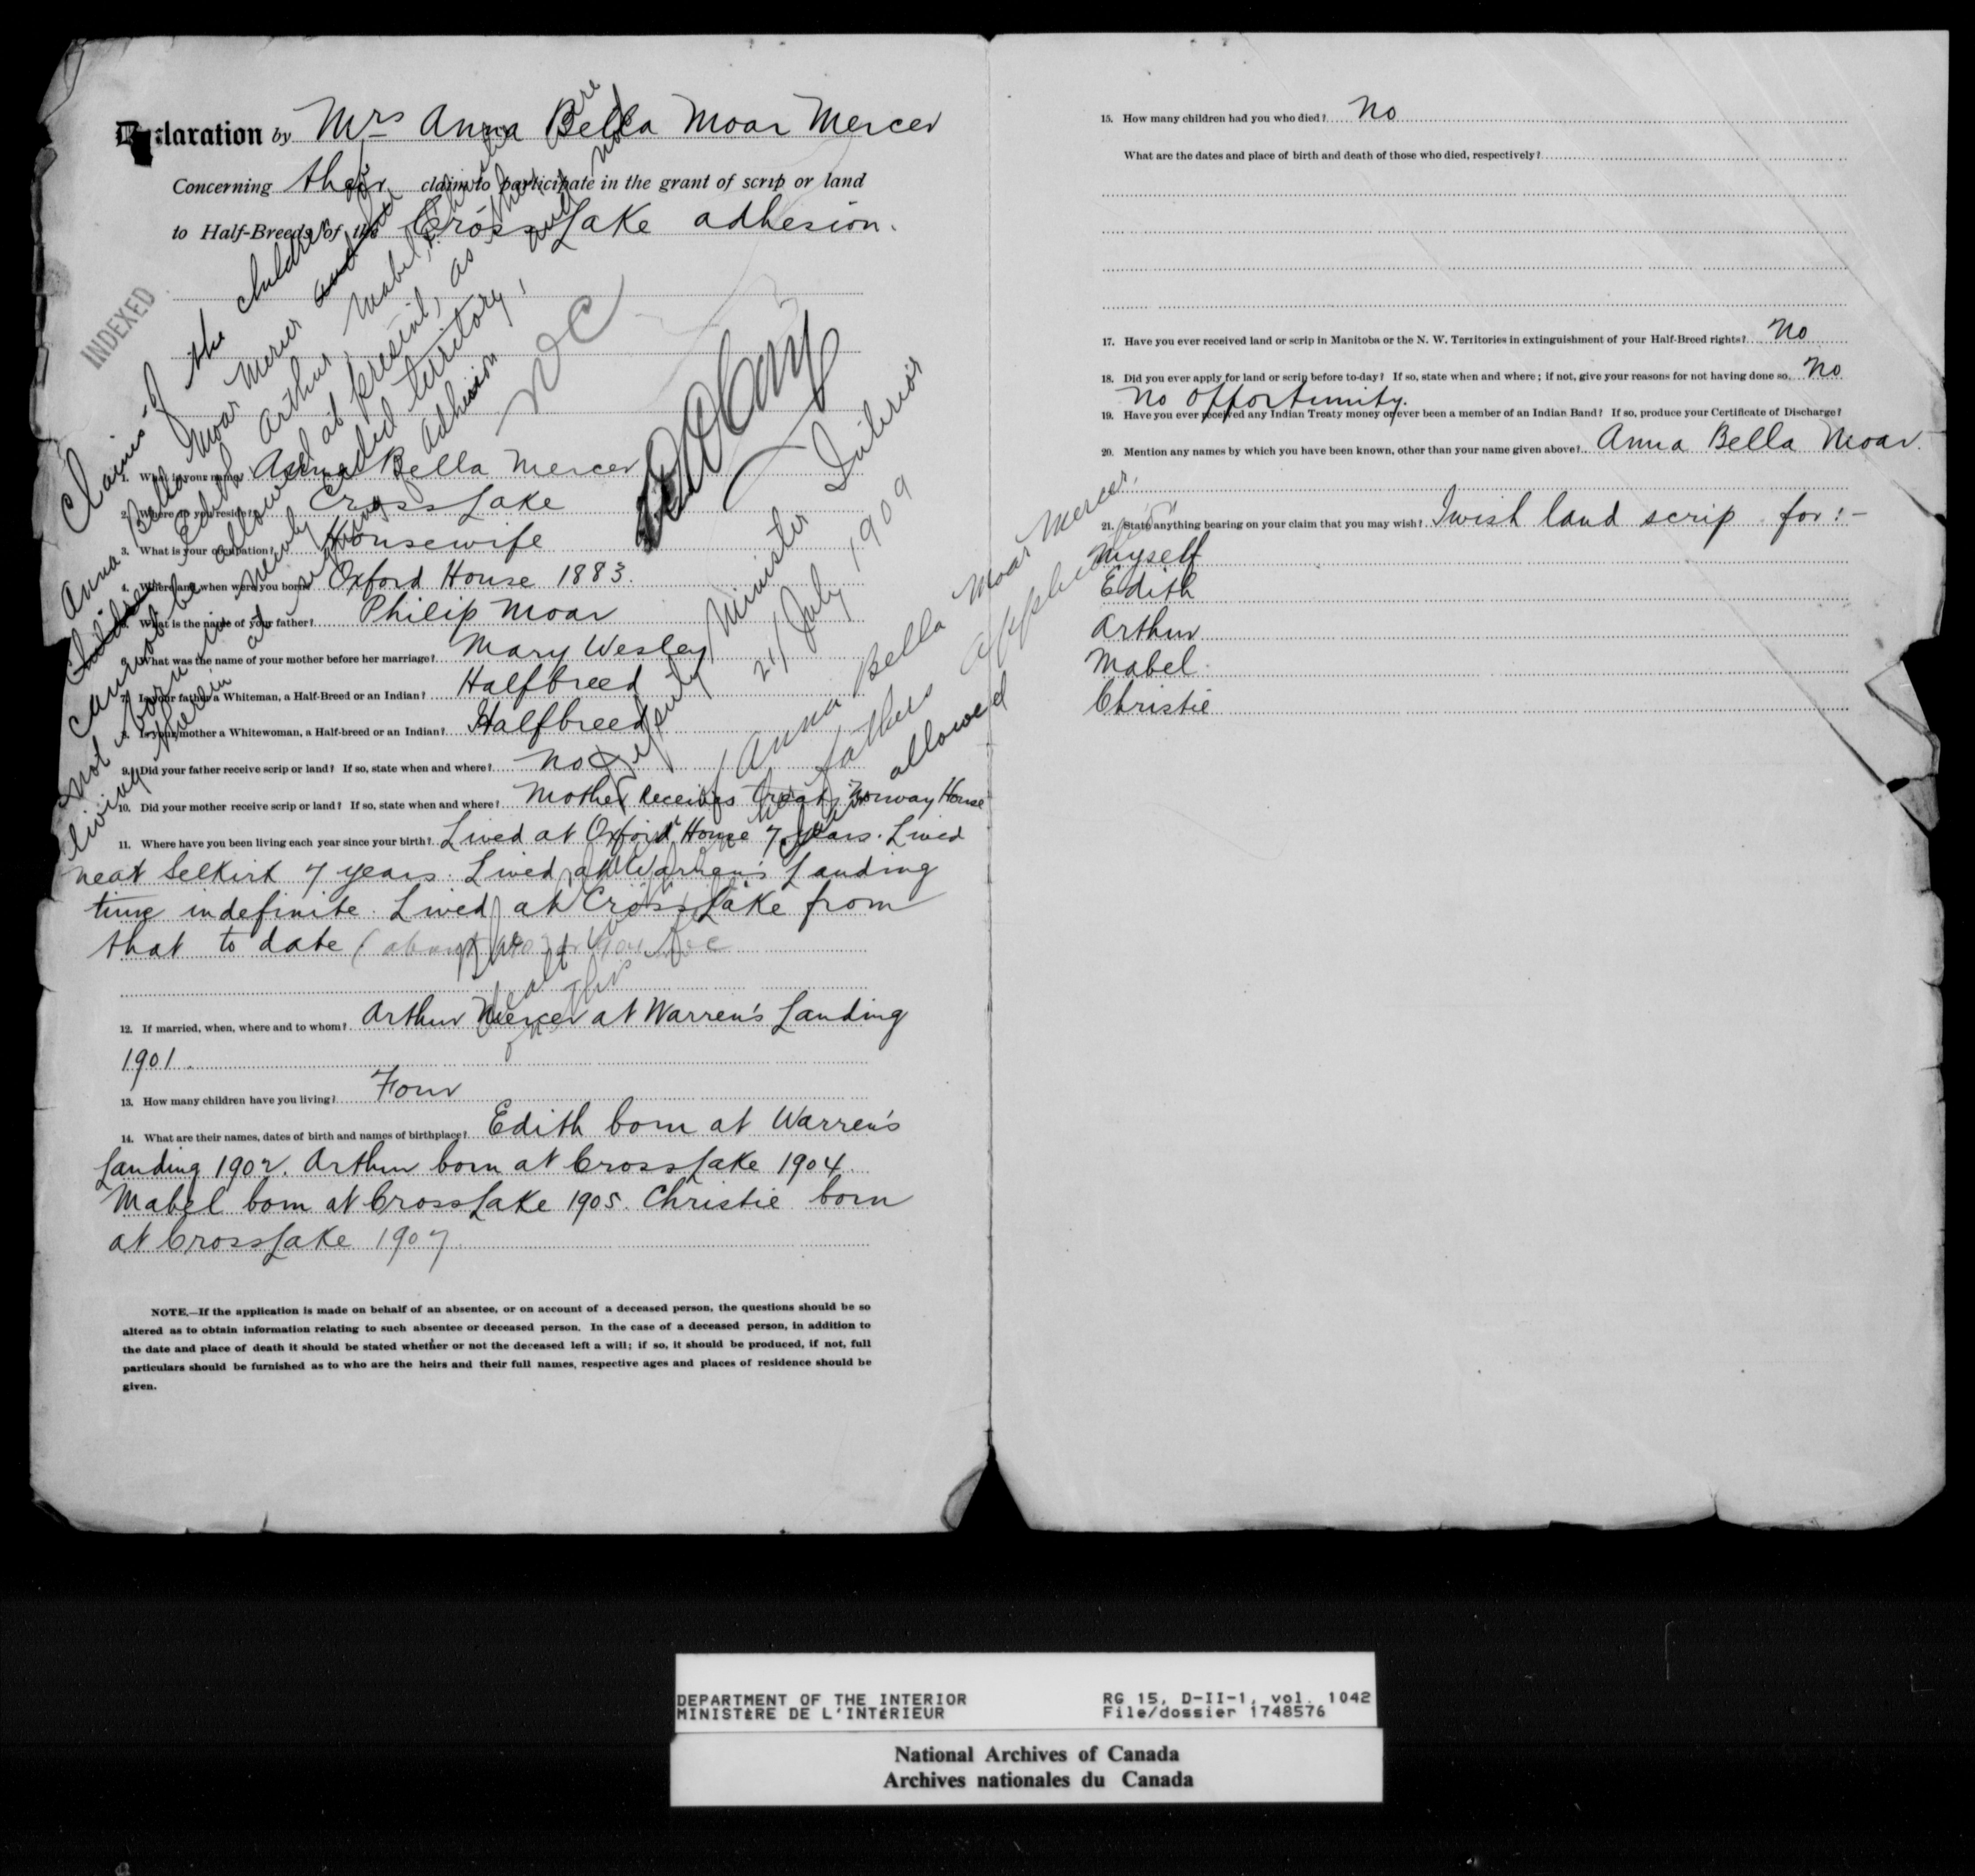 Declaration by Mrs Anna Bella Moar Mercer
Concerning their claim to participate in the grant of scrip or land
to Half-Breeds of the Cross Lake adhesion.
INDEXED
1. What is your name? Anna Bella Mercer
2. Where do you reside? Cross Lake
3. What is your occupation? Housewife
4. Where and when were you born? Oxford House 1883.
5. What is the name of your father? Philip Moar
6. What was the name of your mother before her marriage? Mary Wesley
7. Is your father a Whiteman, a Half-Breed or an Indian? Halfbreed
8. Is your mother a Whitewoman, a Half-breed or an Indian? Halfbreed
9. Did your father receive scrip or land? If so, state when and where? No
10. Did your mother receive scrip or land? If so, state when and where? Mother Receives Treaty Norway House
11. Where have you been living each year since your birth? Lived at Oxford House 7 years. Lived
near Selkirk 7 years. Lived at Warren's Landing
time indefinite. Lived at Cross Lake from
that to date
12. If married, when, where and to whom? Arthur Mercer at Warren's Landing
1901.
13. How many children have you living? Four
14. What are their names, dates of birth and names of birthplace? Edith born at Warren's
Landing 1902. Arthur born at Cross Lake 1904.
Mabel born at Cross Lake 1905. Christie born
at Cross Lake 1907.
NOTE.—If the application is made on behalf of an absentee, or on account of a deceased person, the questions should be so
altered as to obtain information relating to such absentee or deceased person. In the case of a deceased person, in addition to
the date and place of death it should be stated whether or not the deceased left a will; if so, it should be produced, if not, full
particulars should be furnished as to who are the heirs and their full names, respective ages and places of residence should be
given.
Claims of the children of
Anna Bella Moar Mercer
Children Edith, Arthur, Mabel, Christie are
cannot be allowed at present, as they
not born in newly ceded territory, and not
living therein at signing of Adhesion
Deputy Minister Interior
21 July 1909
Anna Bella Moar Mercer
father's application
allowed
15. How many children had you who died? No
What are the dates and place of birth and death of those who died, respectively?
17. Have you ever received land or scrip in Manitoba or the N. W. Territories in extinguishment of your Half-Breed rights? No
18. Did you ever apply for land or scrip before to-day? If so, state when and where; if not, give your reasons for not having done so. No
No opportunity.
19. Have you ever received any Indian Treaty money or ever been a member of an Indian Band? If so, produce your Certificate of Discharge?
20. Mention any names by which you have been known, other than your name given above? Anna Bella Moar.
21. State anything bearing on your claim that you may wish? I wish land scrip for:-
Myself
Edith
Arthur
Mabel.
Christie
DEPARTMENT OF THE INTERIOR
MINISTÈRE DE L'INTÉRIEUR
RG 15, D-II-1, vol. 1042
File/dossier 1748576
National Archives of Canada
Archives nationales du Canada